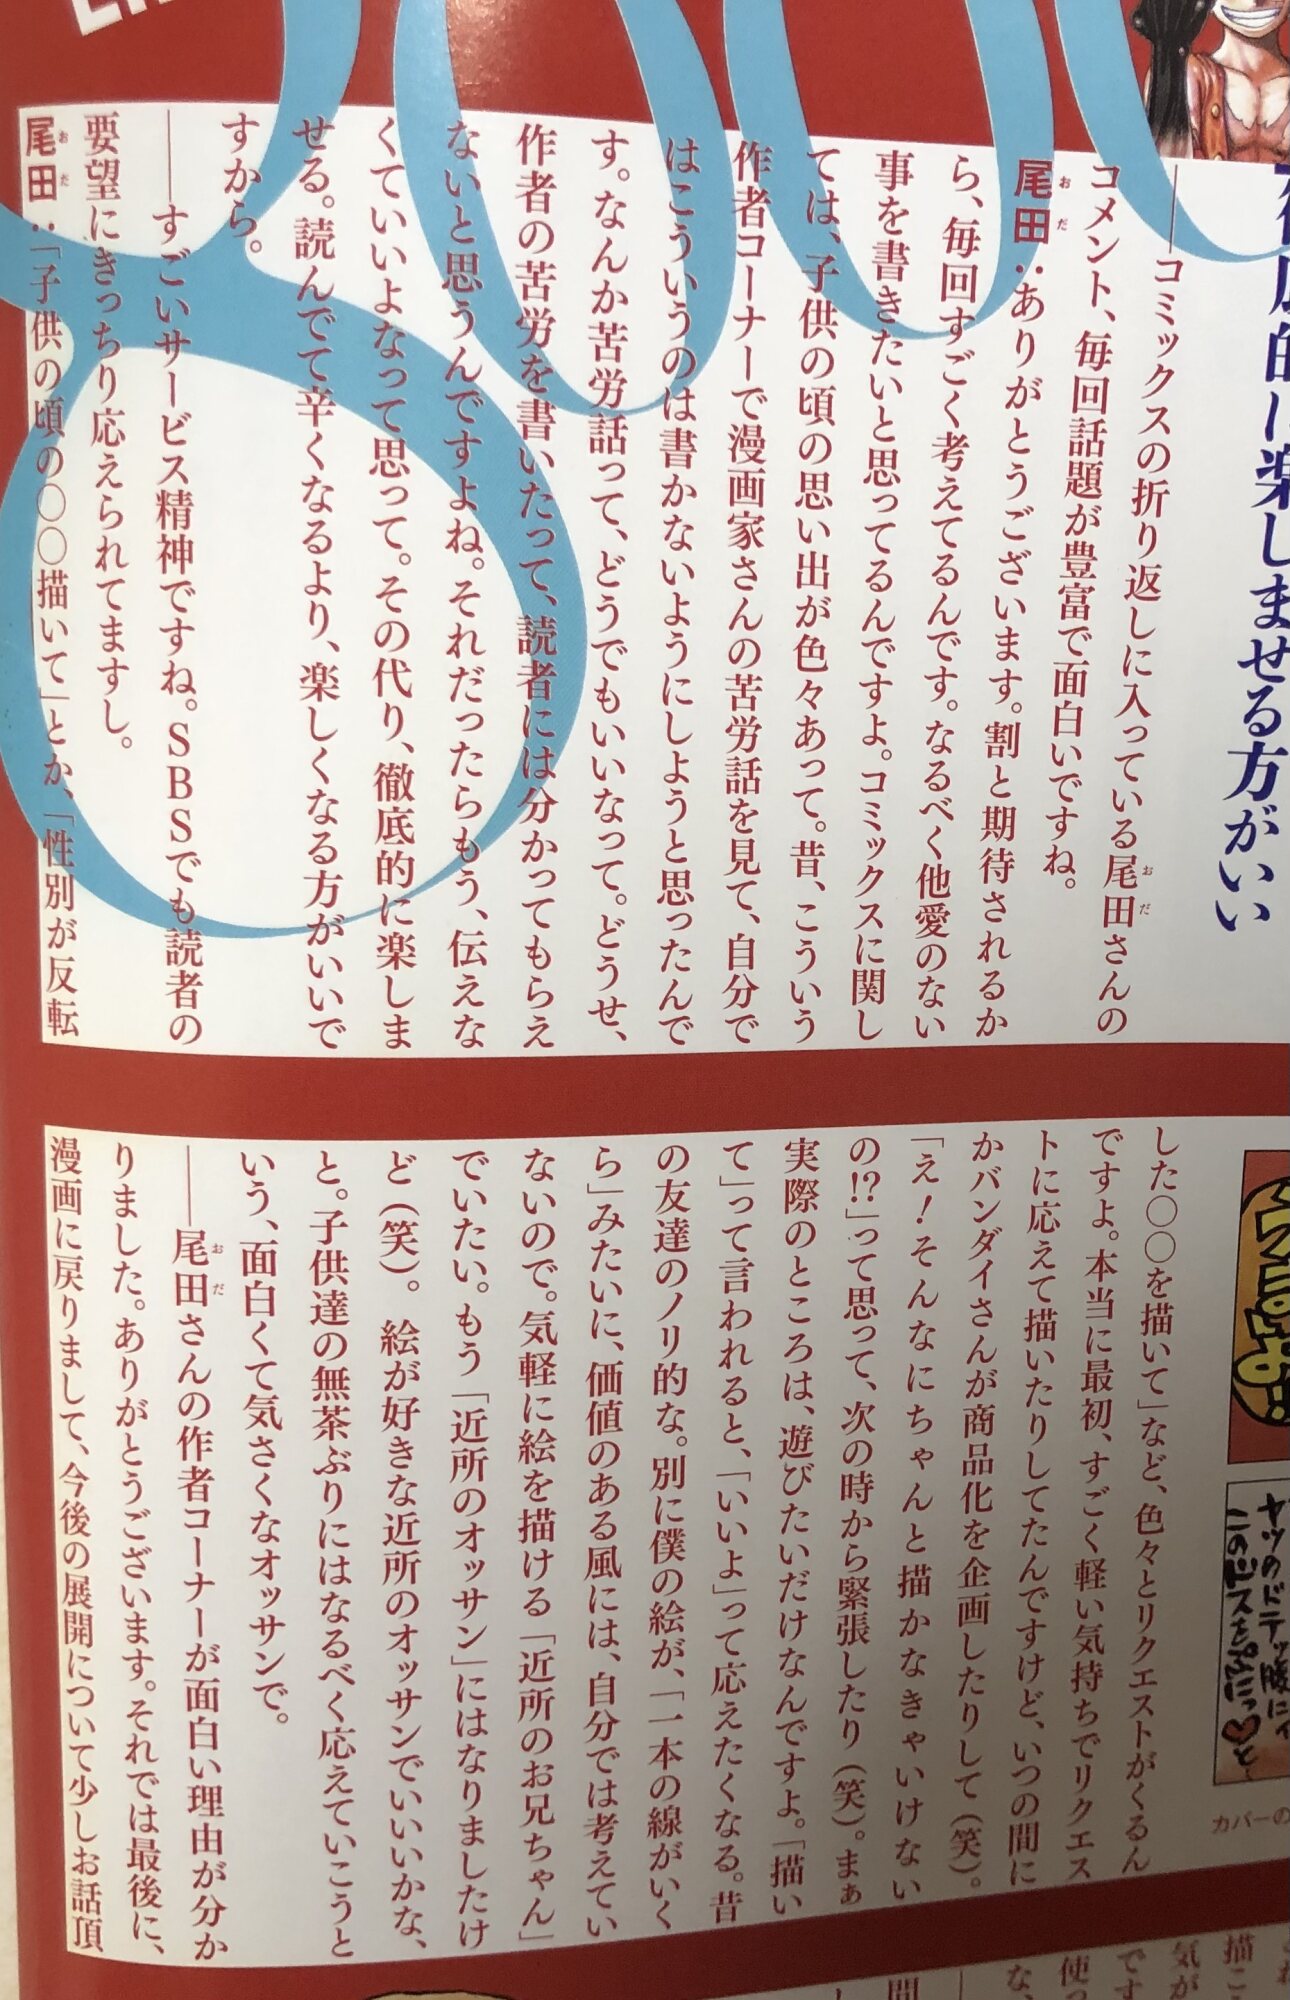 底的に楽しませる方がいい
――コミックスの折り返しに入っている尾田さんの
コメント、毎回話題が豊富で面白いですね。
尾田：ありがとうございます。割と期待されるか
ら、毎回すごく考えてるんです。なるべく他愛のない
事を書きたいと思ってるんですよ。コミックスに関し
ては、子供の頃の思い出が色々あって。昔、こういう
作者コーナーで漫画家さんの苦労話を見て、自分で
はこういうのは書かないようにしようと思ったんで
す。なんか苦労話って、どうでもいいなって。どうせ、
作者の苦労を書いたって、読者には分かってもらえ
ないと思うんですよね。それだったらもう、伝えな
くていいよなって思って。その代り、徹底的に楽しま
せる。読んでて辛くなるより、楽しくなる方がいいで
すから。
――すごいサービス精神ですね。SBSでも読者の
要望にきっちり応えられてますし。
尾田：「子供の頃の〇〇描いて」とか、「性別が反転
した〇〇を描いて」など、色々とリクエストがくるん
ですよ。本当に最初、すごく軽い気持ちでリクエス
トに応えて描いたりしてたんですけど、いつの間に
かバンダイさんが商品化を企画したりして（笑）。
「え！そんなにちゃんと描かなきゃいけない
の!?」って思って、次の時から緊張したり（笑）。まぁ
実際のところは、遊びたいだけなんですよ。「描い
て」って言われると、「いいよ」って応えたくなる。昔
の友達のノリ的な。別に僕の絵が、「一本の線がいく
ら」みたいに、価値のある風には、自分では考えてい
ないので。気軽に絵を描ける「近所のお兄ちゃん」
でいたい。もう「近所のオッサン」にはなりましたけ
ど（笑）。絵が好きな近所のオッサンでいいいかな、
と。子供達の無茶ぶりにはなるべく応えていこうと
いう、面白くて気さくなオッサンで。
――尾田さんの作者コーナーが面白い理由が分か
りました。ありがとうございます。それでは最後に、
漫画に戻りまして、今後の展開について少しお話頂
カバーの